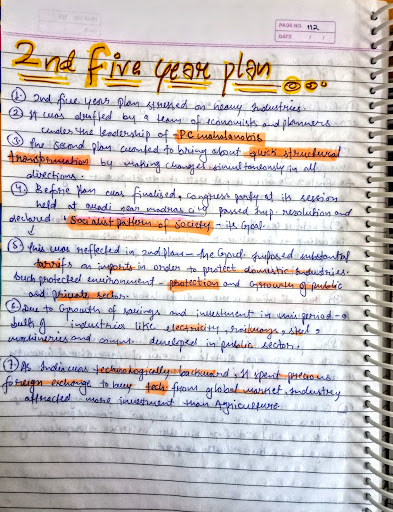 PAGE NO. 112
DATE / /
2nd five year plan
① 2nd five year plan stressed on heavy industries.
② It was drafted by a team of economists and planners
under the leadership of PC mahalanobis
③ The second plan wanted to bring about quick structural
transformation by making changes simultaneously in all
directions.
④ Before plan was finalised, congress party at its session
held at avadi near madras city passed imp. resolution and
declared 'Socialist pattern of Society' - its goal.
⑤ This was reflected in 2nd plan - the Govt. imposed substantial
tarrifs on imports in order to protect domestic industries.
Such protected environment - protection and growth of public
and private sector.
⑥ Due to Growth of savings and investment in this period - a
bulk of industries like electricity, railways, steel,
machineries and comm. developed in public sector.
⑦ As India was technologically backward, it spent precious
foreign exchange to buy tech from global market. industry
attracted more investment than Agriculture.